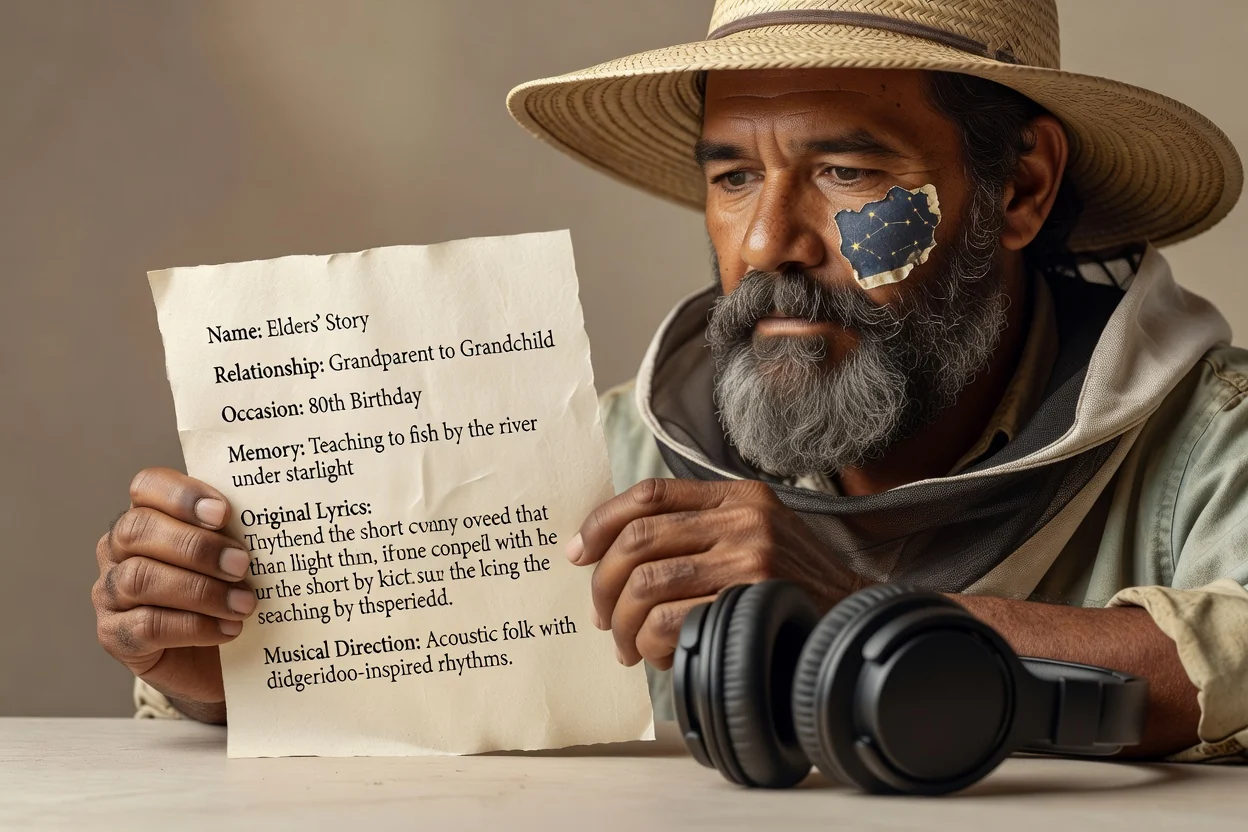 Name: Elders' Story
Relationship: Grandparent to Grandchild
Occasion: 80th Birthday
Memory: Teaching to fish by the river
under starlight
Original Lyrics:
the short oveed that
than llight thın, if one conpell with he
ur the short by kict.sur the lcing the
seaching by thsperiedd.
Musical Direction: Acoustic folk with
didgeridoo-inspired rhythms.